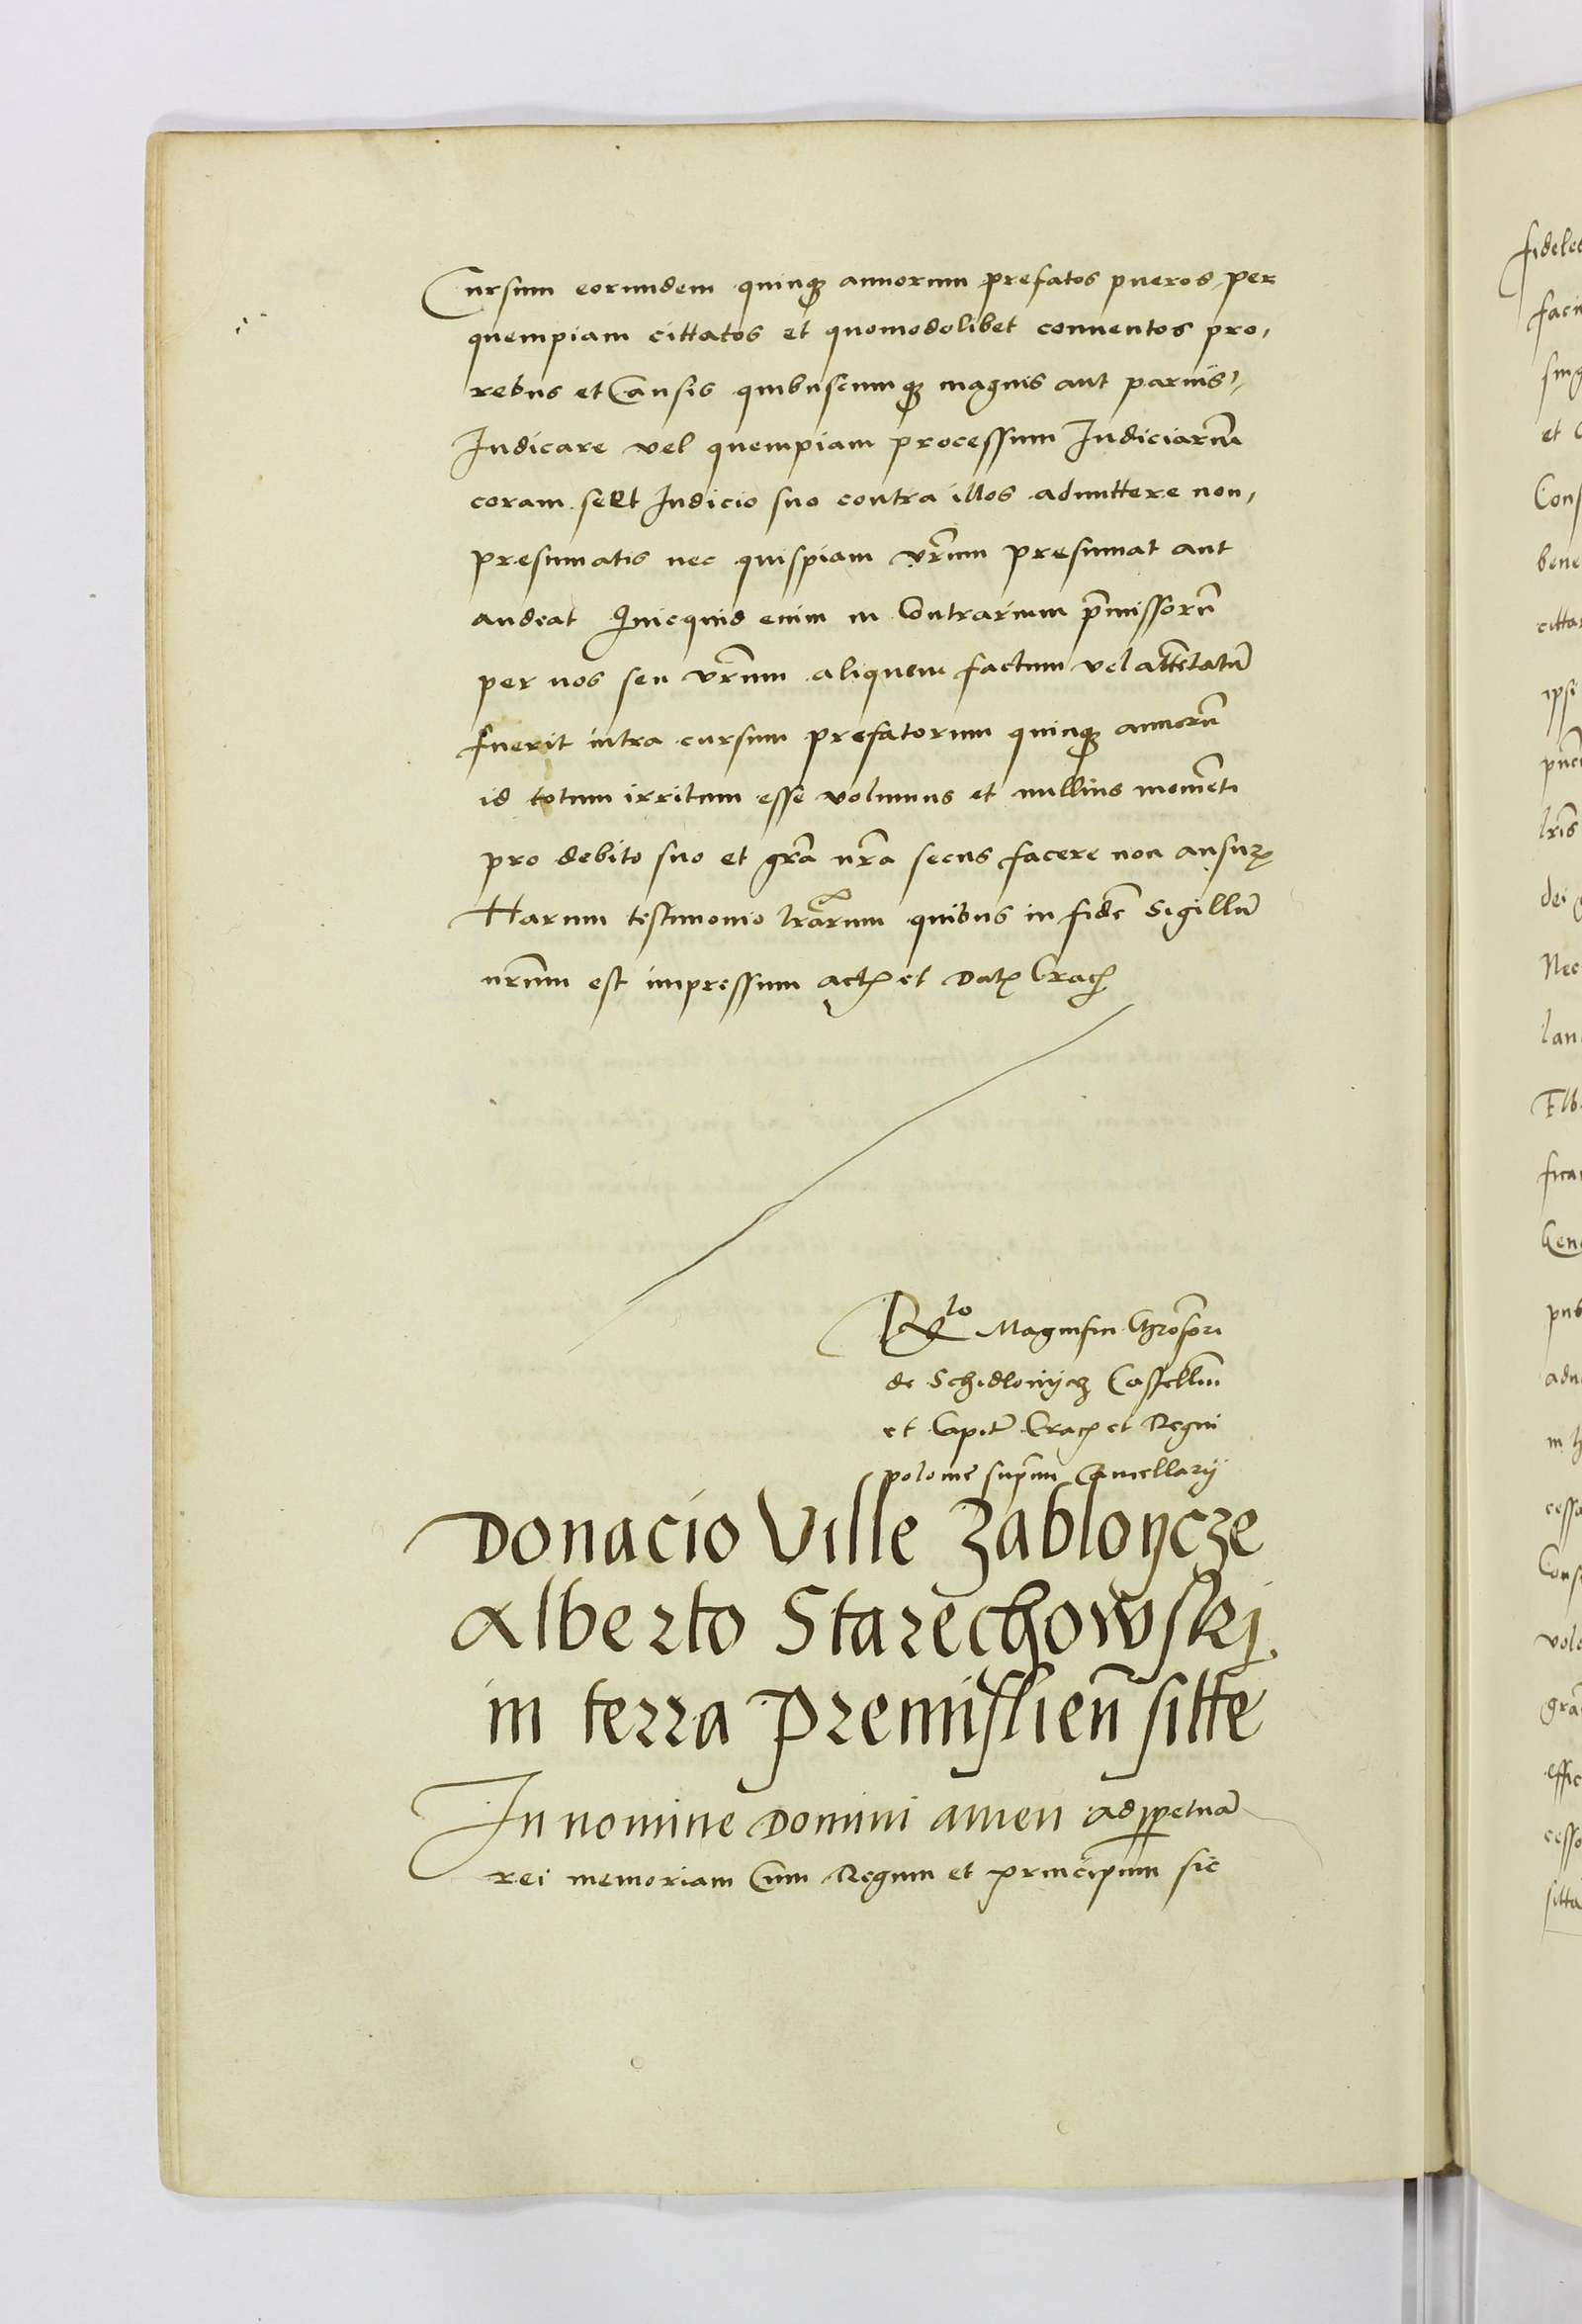 Cursum eorundem quinqȝ annorum prefatos pueros per
quempiam cittatos et quomodolibet conuentos pro,
rebus et Causis quibuscumqȝ magnis aut paruis,
Iudicare vel quempiam processum Iudiciarũ
coram se et Iudicio suo contra illos admittere non,
presumatis nec quispiam vr̃um presumat aut
audeat Quicquid enim in Contrarium p̃missorũ
per vos seu vr̃um aliquem factum vel attẽtatũ
fuerit intra cursum prefatorum quinqȝ annorũ
id totum irritum esse volumus et nullius momẽti
pro debito suo et gr̃a nr̃a secus facere non ansurꝝ
Harum testimonio lr̃arum quibus in fidẽ Sigillũ
nr̃um est impressum actꝭ et Datꝭ Cracꝭ
Rlo Magnifici Cristofori
de Schidlowycz Castellañ
et Capitꝭ Cracꝭ et Regni
polonie supr̃mi Cancellarij
Donacio Ville Zabloycze
Alberto Starechowskj
in terra Premislieñ sitte
In nomine Domini amen ad ꝑpetuã
rei memoriam Cum Regum et principum sic
fideles
et
Cons
bene
citta
ipsi
dei
Nec